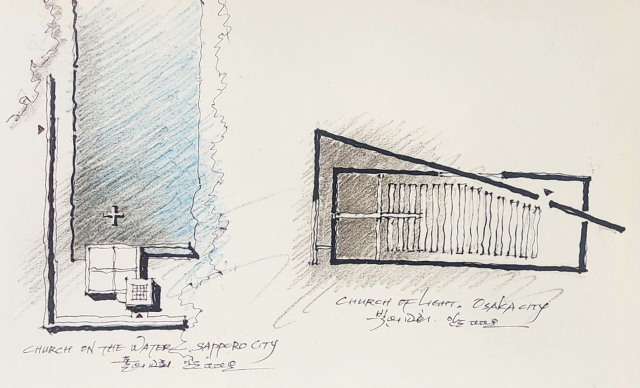 CHURCH ON THE WATER, SAPPORO CITY
물의교회. 안도다다오
CHURCH OF LIGHT. OSAKA CITY
빛의교회. 안도다다오